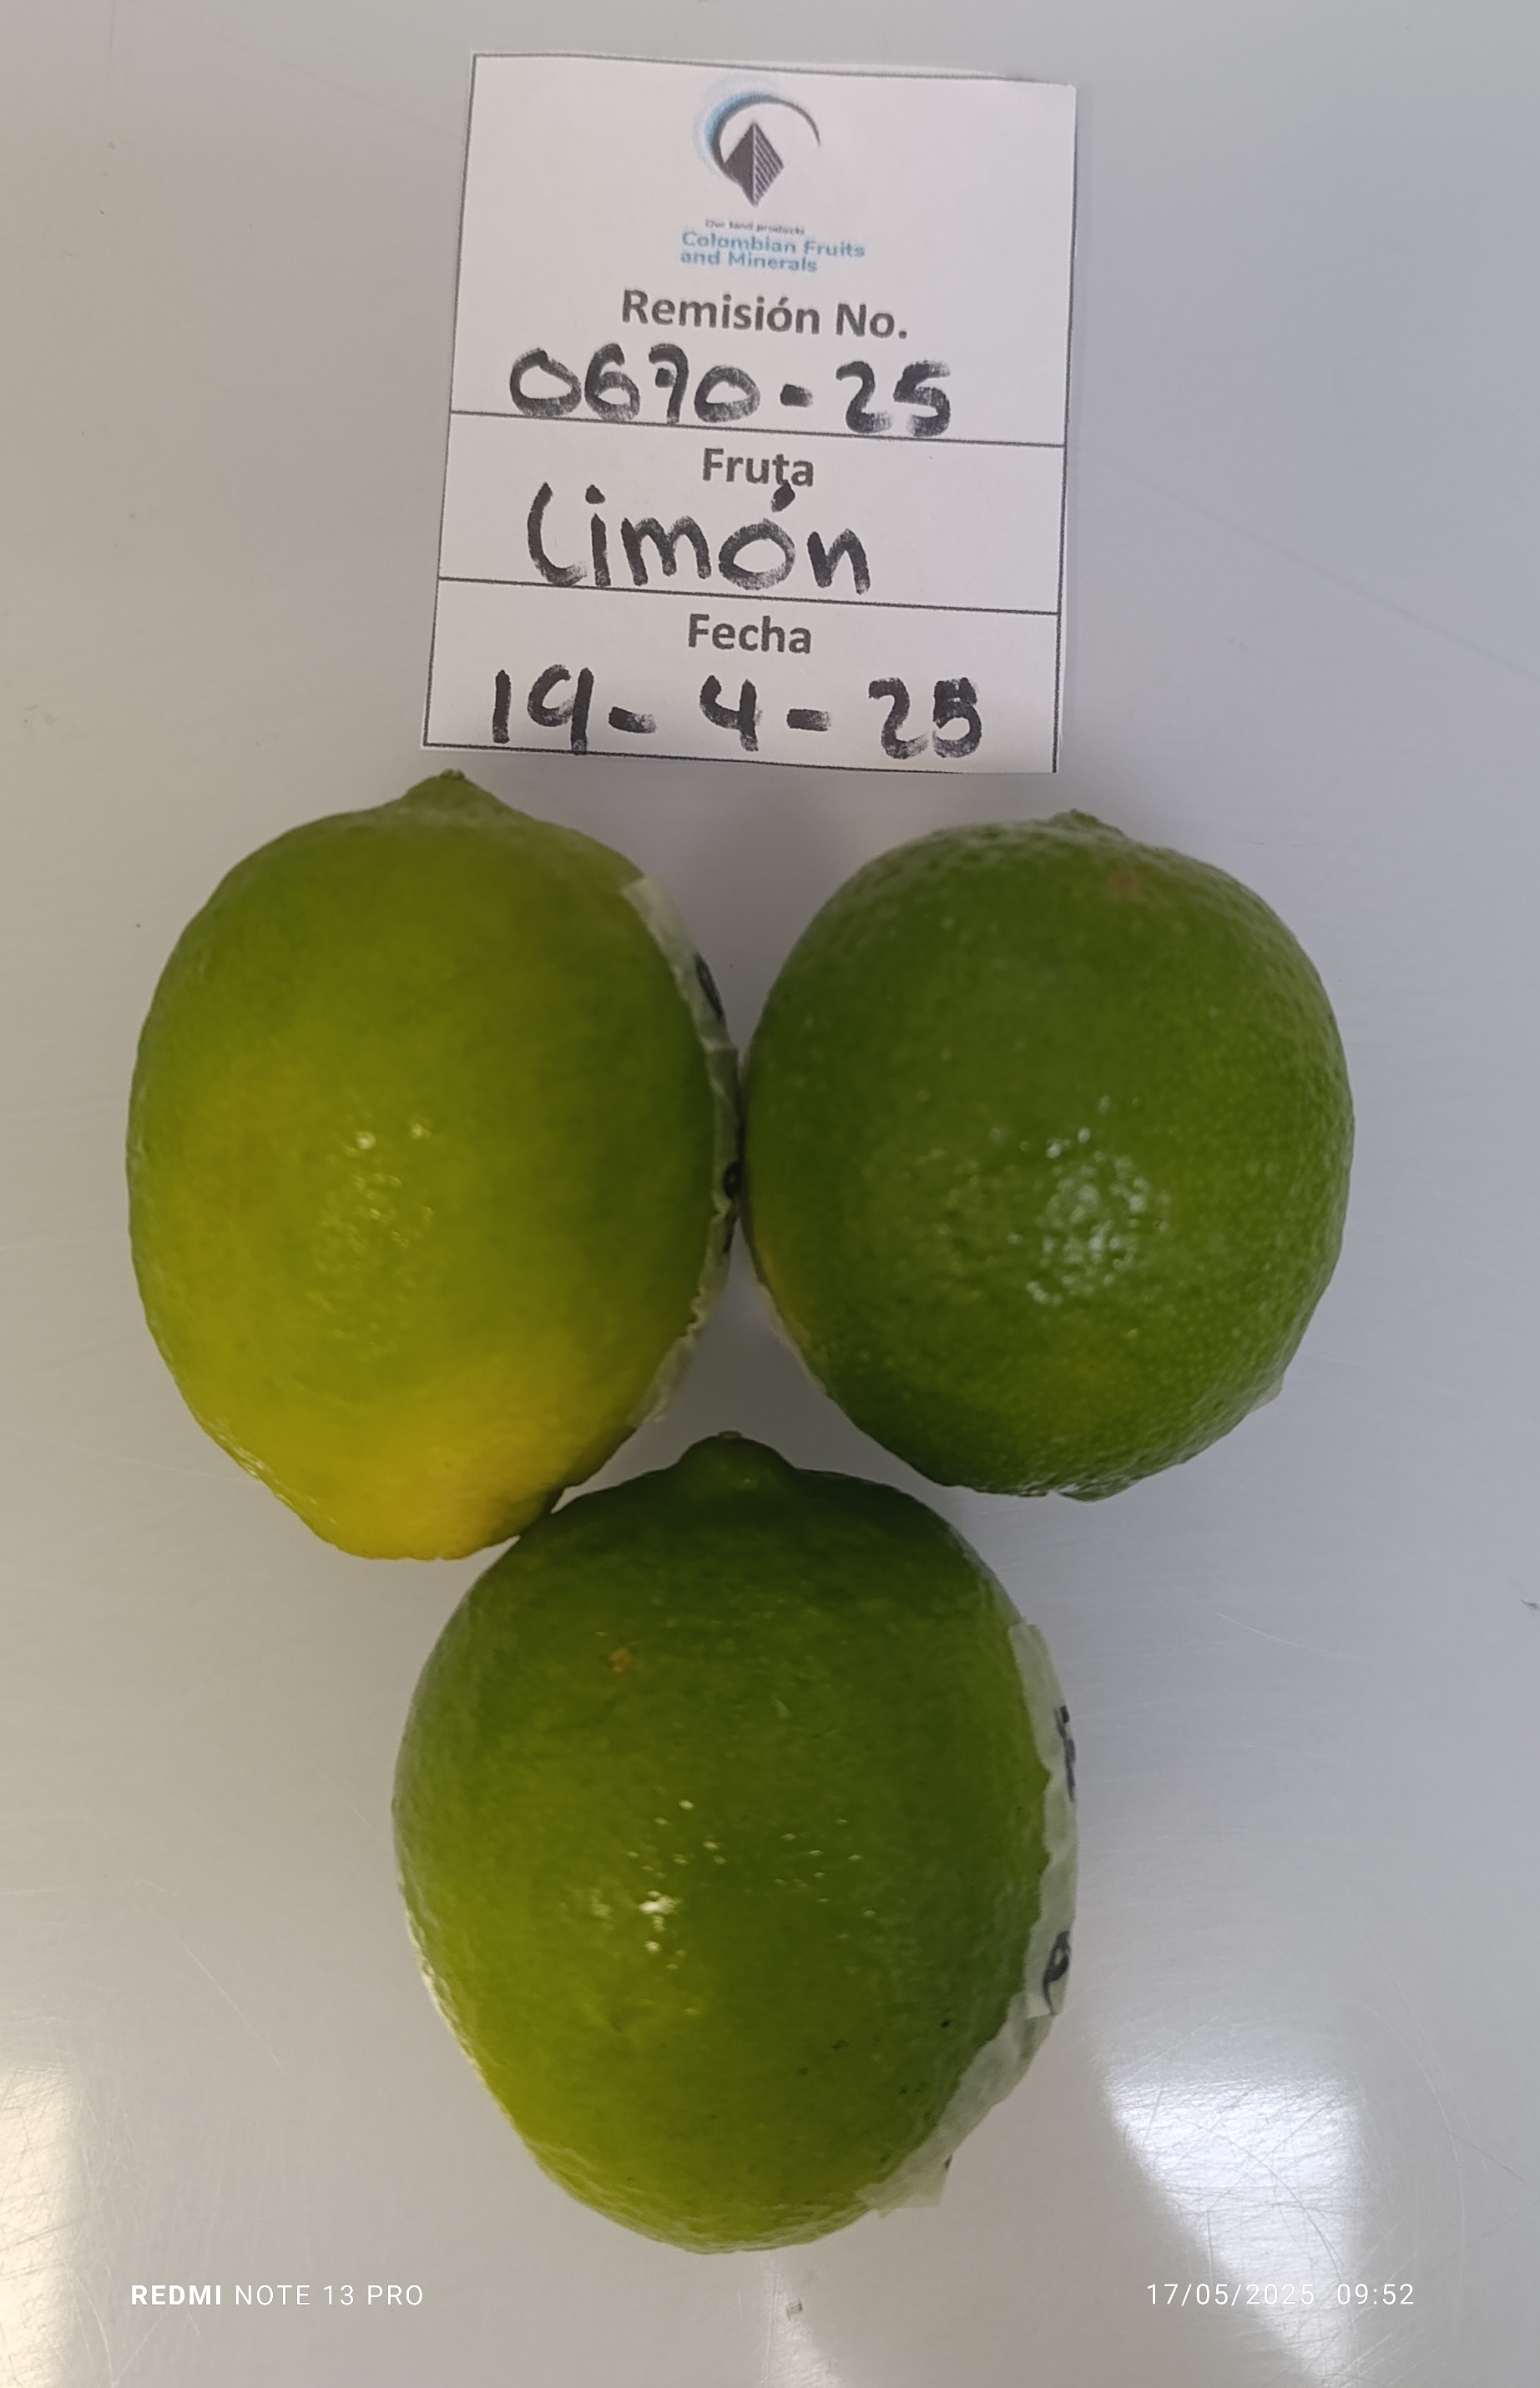 Our land products
Colombian Fruits
and Minerals
Remisión No.
0670-25
Fruta
Limón
Fecha
19-4-25
REDMI NOTE 13 PRO
17/05/2025 09:52